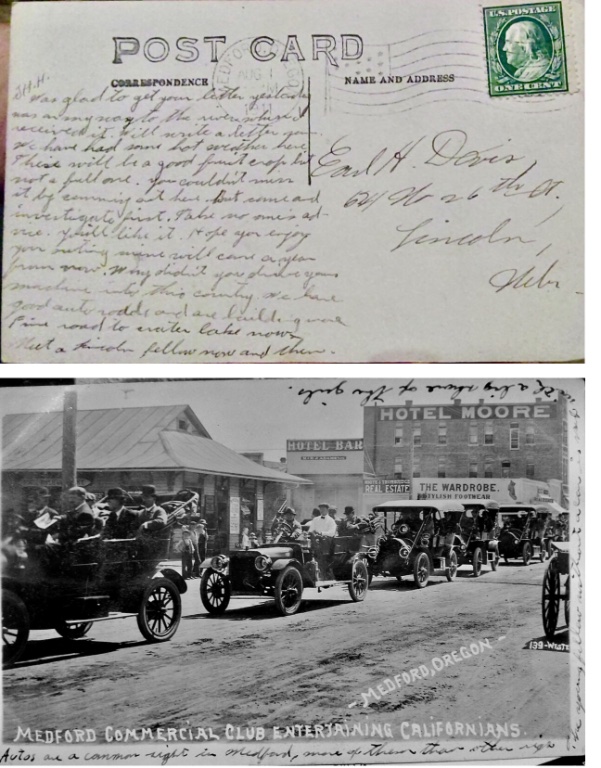 POST CARD
U.S. POSTAGE
ONE CENT
CORRESPONDENCE
NAME AND ADDRESS
MEDFORD
AUG 1
Was glad to get your letter yesterday
was on my way to the river when I
received it. Will write a letter
We have had some hot weather here
There will be a good fruit crop but
not a full one. You couldn't miss
it by comming out here. But come and
investigate first. Take no one's ad-
vice. You'll like it. Hope you enjoy
your outing mine will come a year
from now. Why didn't you drive your
machine into this country. We have
good auto roads and are building more
Fine road to crater lake now.
Meet a Lincoln fellow now and then.
Earl H. Davis,
No 26th St.,
Lincoln,
Nebr
of the girls.
HOTEL MOORE
HOTEL BAR
REAL ESTATE
THE WARDROBE.
STYLISH FOOTWEAR
139-
- MEDFORD, OREGON -
MEDFORD COMMERCIAL CLUB ENTERTAINING CALIFORNIANS.
Autos are a common sight in Medford, more of them than other rigs
young fellow